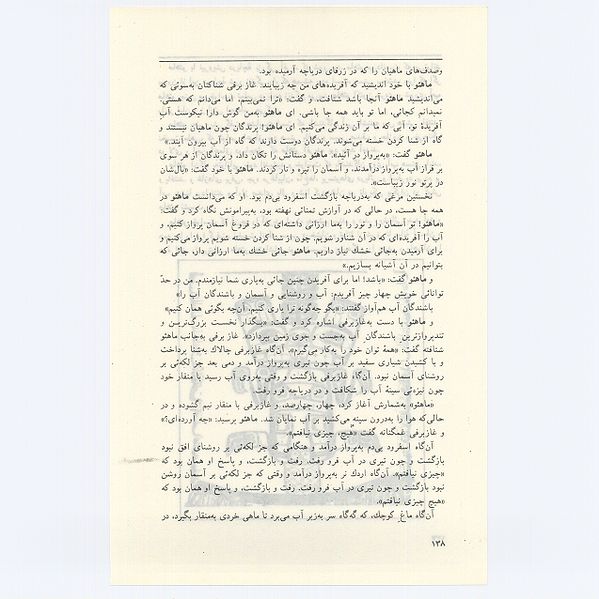 وصدف‌های ماهیان را که در ژرفای دریاچه آرمیده بود.
ماهئو با خود اندیشید که آفریده‌های من چه زیبایند. غاز برفی شناکنان به‌سوئی که
می‌اندیشید ماهئو آنجا باشد شتافت، و گفت: «ترا نمی‌بینم، اما می‌دانم که هستی.
نمیدانم کجائی، اما تو باید همه جا باشی. ای ماهئو به‌من گوش دار! نیکوست آب
آفریدهٔ تو، آبی که ما بر آن زندگی می‌کنیم. ای ماهئو! پرندگان چون ماهیان نیستند و
گاه از شنا کردن خسته می‌شوند. پرندگان دوست دارند که گاه از آب بیرون آیند.»
ماهئو گفت: «به‌پرواز در آئید». ماهئو دستانش را تکان داد، و پرندگان از هر سوی
بر فراز آب به‌پرواز درآمدند، و آسمان را تیره و تار کردند. ماهئو با خود گفت: «بال‌شان
در پرتو نور زیباست».
نخستین مرغی که به‌دریاچه بازگشت اسفرود بی‌دم بود. او که می‌دانست ماهئو در
همه جا هست، در حالی که در آوازش تمنائی نهفته بود، به‌پیرامونش نگاه کرد و گفت:
«ماهئو! تو آسمان را و نور را به‌ما ارزانی داشته‌ای که در فروغ آسمان پرواز کنیم، و
آب را آفریده‌ای که در آن شناور شویم. چون از شنا کردن خسته شویم پرواز می‌کنیم و
برای آرمیدن به‌جائی خشك نیاز داریم. ماهئو جائی خشك به‌ما ارزانی دار، جائی که
بتوانیم در آن آشیانه بسازیم.»
و ماهئو گفت: «باشد! اما برای آفریدن چنین جائی به‌یاری شما نیازمندم. من در حدّ
توانائی خویش چهار چیز آفریدم: آب و روشنایی و آسمان و باشندگان آب را»
باشندگان آب هم‌آواز گفتند: «بگو چه‌گونه ترا یاری کنیم. آن‌چه بگوئی همان کنیم»
و ماهئو با دست به‌غازبرفی اشاره کرد و گفت: «بگذار نخست بزرگ‌ترین و
تندپروازترین باشندگان آب به‌جست و جوی زمین بپردازد». غاز برفی به‌جانب ماهئو
شتافته گفت: «همهٔ توان خود را به‌کار می‌گیرم». آن‌گاه غازبرفی چالاك به‌شنا پرداخت
و با کشیدن شیاری سفید بر آب چون تیری به‌پرواز درآمد و دمی بعد جز لکه‌ئی بر
روشنای آسمان نبود. آن‌گاه غازبرفی بازگشت و وقتی به‌روی آب رسید با منقار خود
چون نیزه‌ئی سینهٔ آب را شکافت و در دریاچه فرو رفت.
«ماهئو» به‌شمارش آغاز کرد، چهار، چهارصد، و غازبرفی با منقار نیم گشوده و در
حالی‌که هوا را به‌درون سینه می‌کشید بر آب نمایان شد. ماهئو پرسید: «چه آورده‌ای؟»
و غازبرفی غمگنانه گفت «هیچ، چیزی نیافتم».
آن‌گاه اسفرود بی‌دم به‌پرواز درآمد و هنگامی که جز لکه‌ئی بر روشنای افق نبود
بازگشت و چون تیری در آب فرو رفت. رفت و بازگشت، و پاسخ او همان بود که
«چیزی نیافتم». آن‌گاه اردك نر به‌پرواز درآمد و وقتی که جز لکه‌ئی بر آسمان روشن
نبود بازگشت و چون تیری در آب فرو رفت. رفت و بازگشت، و پاسخ او همان بود که
«هیچ چیزی نیافتم».
آن‌گاه ماغ کوچك، که گه‌گاه سر به‌زیر آب می‌برد تا ماهی خردی به‌منقار بگیرد، در
۱۳۸